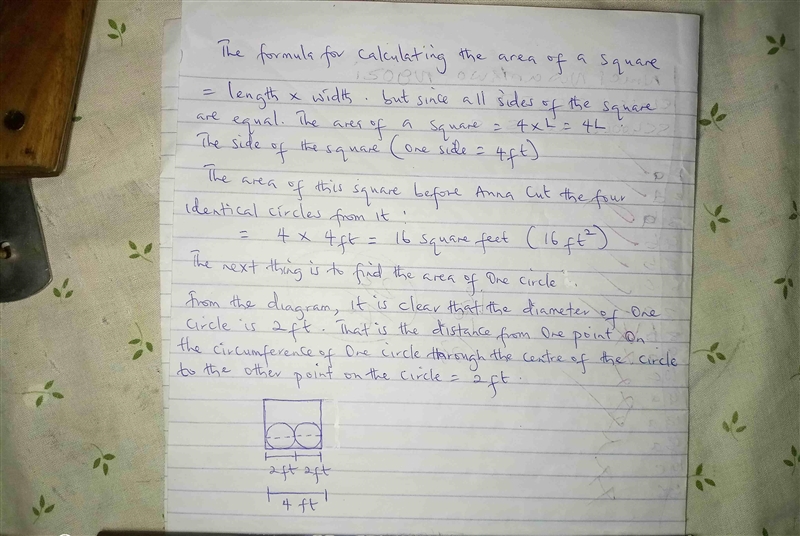 The formula for calculating the area of a square
= length x width. but since all sides of the square
are equal. The area of a square = 4xL = 4L.
The side of the square (One side = 4ft)
The area of this square before Anna Cut the four
identical circles from it:
= 4 x 4ft = 16 square feet (16 ft²)
The next thing is to find the area of One circle.
From the diagram, it is clear that the diameter of One
Circle is 2ft. That is the distance from One point On
the circumference of One circle through the centre of the circle
to the other point on the circle = 2ft.
2ft 2ft
4 ft